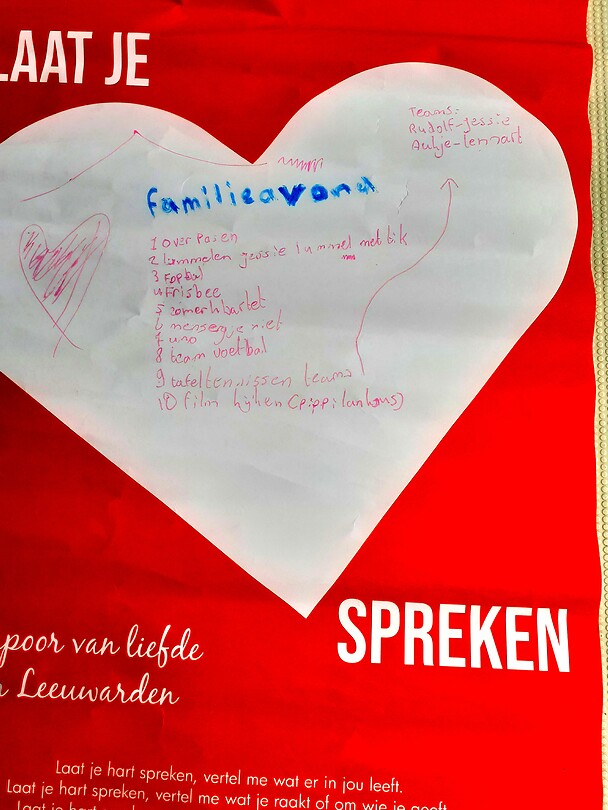 LAAT JE
Teams:
Rudolf-Jessie
Aukje-lennart
familieavond
1 over Pasen
2 lummelen jessie lummel met tik
3
4 Frisbee
5 zomerkwartet
6 mensergje niet
7 uno
8 team voetbal
9 tafeltennissen teams
10 film kijken (pippi lankous)
SPREKEN
poor van liefde
n Leeuwarden
Laat je hart spreken, vertel me wat er in jou leeft.
Laat je hart spreken, vertel me wat je raakt of om wie je geeft.